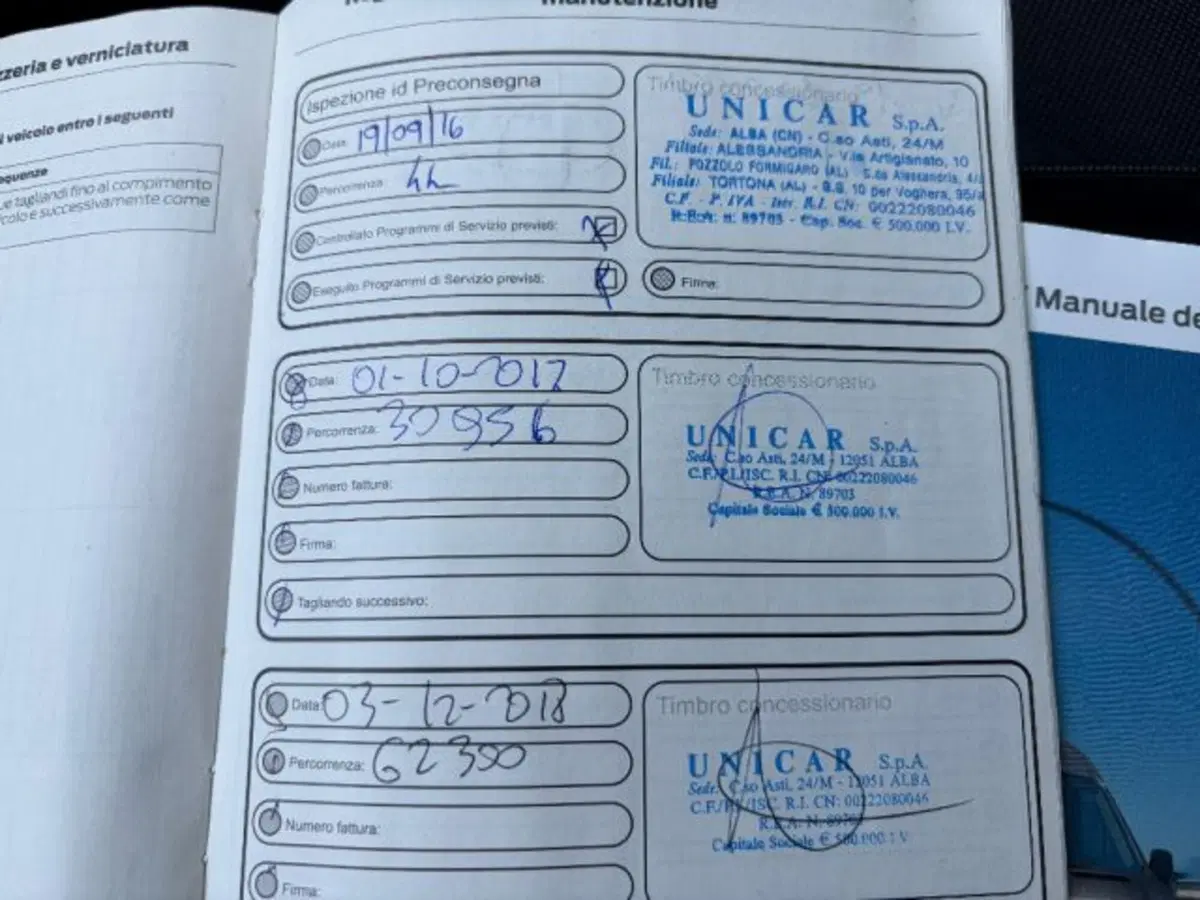 Manutenzione
zzeria e verniciatura
l veicolo entro i seguenti
equenze
ue tagliandi fino al compimento
colo e successivamente come
Ispezione id Preconsegna
Data: 19/09/16
Percorrenza:
Controllato Programmi di Servizio previsti:
Eseguito Programmi di Servizio previsti:
Timbro concessionario
UNICAR S.p.A.
Sede: ALBA (CN) - C.so Asti, 24/M
Filiale: ALESSANDRIA - V.le Artigianato, 10
Fil.: POZZOLO FORMIGARO (AL) S.da Alessandria, 4/
Filiale: TORTONA (AL) - S.S. 10 per Voghera, 95/a
C.F. - P. IVA - Iscr. R.I. CN: 00222080046
R.E.A: n. 89703 - Cap. Soc. € 500.000 I.V.
Firma:
Data: 01-10-2017
Percorrenza: 30956
Numero fattura:
Firma:
Tagliando successivo:
Timbro concessionario
UNICAR S.p.A.
Sede: C.so Asti, 24/M - 12051 ALBA
C.F./P.I./ISC. R.I. CN: 00222080046
R.E.A. N. 89703
Capitale Sociale € 500.000 I.V.
Data: 03-12-2018
Percorrenza: 62350
Numero fattura:
Firma:
Timbro concessionario
UNICAR S.p.A.
Sede: C.so Asti, 24/M - 12051 ALBA
C.F./P.I./ISC. R.I. CN: 00222080046
R.E.A. N. 89703
Capitale Sociale € 500.000 I.V.
Manuale de